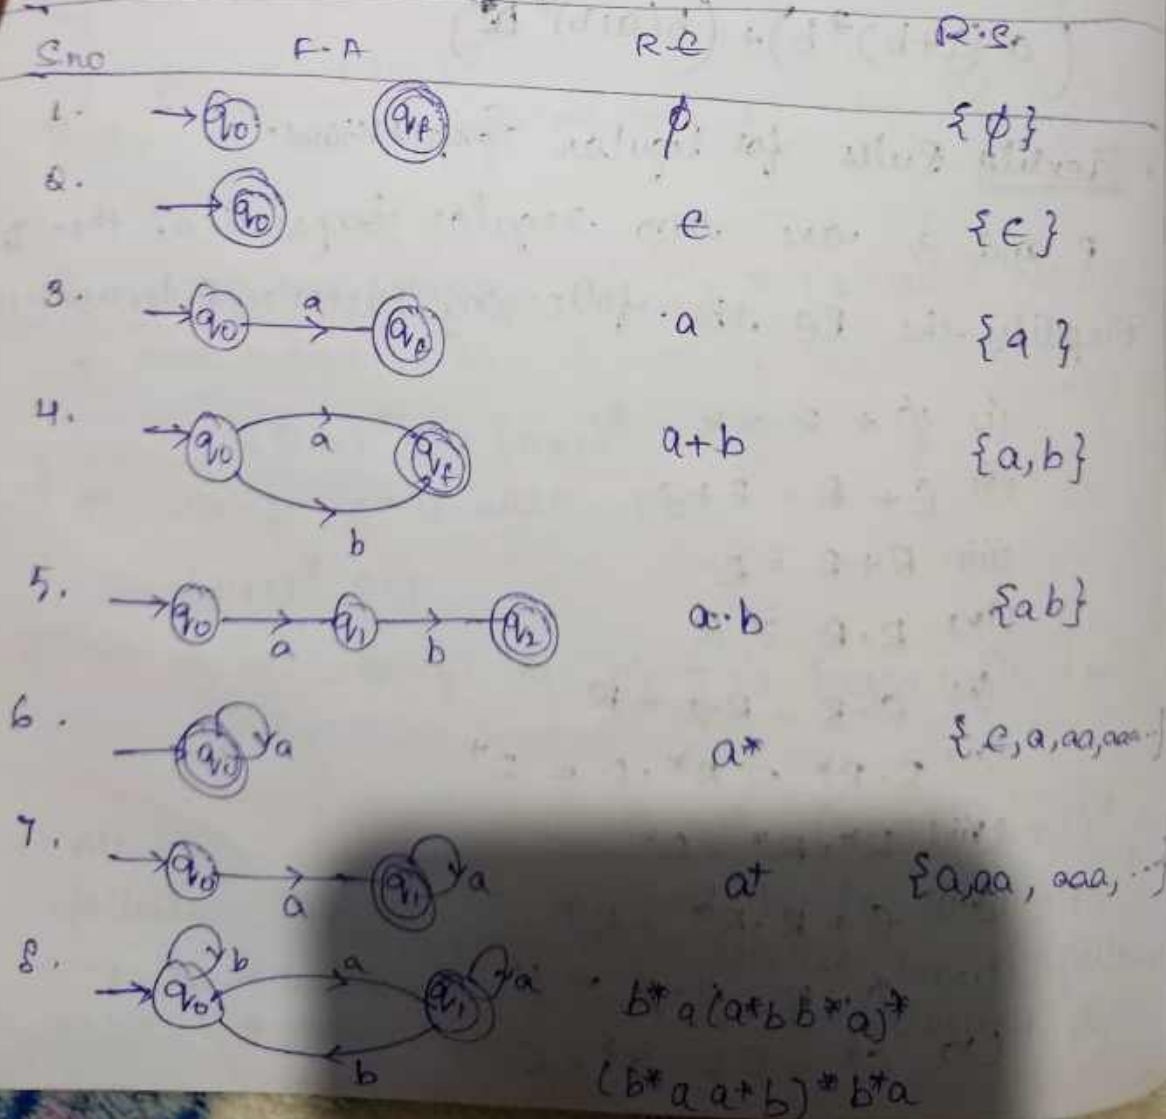 S.no F-A R.E R.S.
1. q0 qf ϕ {ϕ}
2. q0 ϵ {ϵ}
3. q0 a qf a {a}
4. q0 a qf b a+b {a,b}
5. q0 a q1 b q2 a.b {ab}
6. q0 a a* {ϵ,a,aa,aaa..}
7. q0 a q1 a a+ {a,aa, aaa, ..}
8. q0 b a q1 a b b*a(a*bb*a)*
(b*aa*b)*b*a